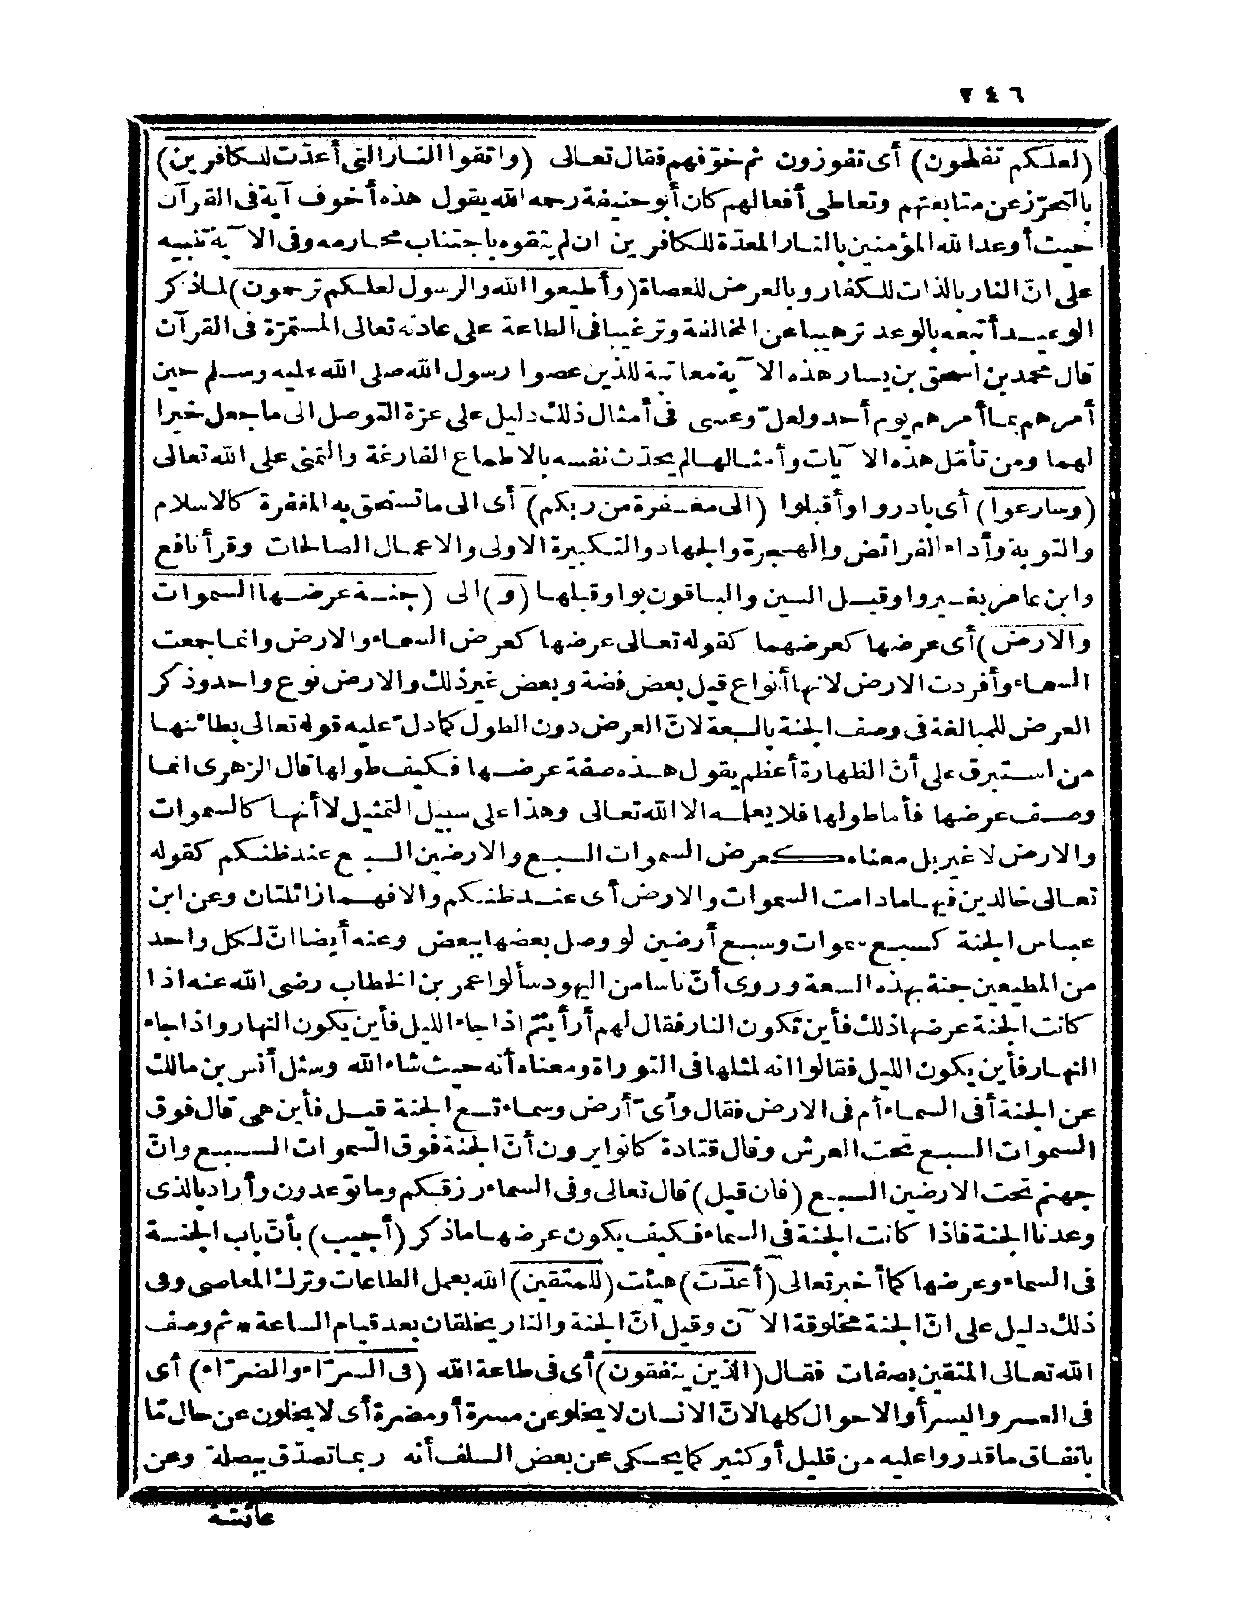 ٢٤٦
(لعلكم تفلحون) أى تفوزون ثم خوّفهم فقال تعالى (واتقوا النار التى أعدّت للكافرين)
بالتحرّز عن متابعتهم وتعاطى أفعالهم كان أبو حنيفة رحمه الله يقول هذه أخوف آية فى القرآن
حيث أوعد الله المؤمنين بالنار المعدة للكافرين ان لم يتقوه باجتناب محارمه وفى الآية تنبيه
على انّ النار بالذات للكفار وبالعرض للعصاة (وأطيعوا الله والرسول لعلكم ترحمون) لما ذكر
الوعيد أتبعه بالوعد ترهيبا عن المخالفة وترغيبا فى الطاعة على عادته تعالى المستمرّة فى القرآن
قال محمد بن اسحق بن يسار هذه الآية معاتبة للذين عصوا رسول الله صلى الله عليه وسلم حين
أمرهم بما أمرهم يوم أحد ولعلّ وعسى فى أمثال ذلك دليل على عزة التوصل الى ما جعل خبرا
لهما ومن تأمّل هذه الآيات وأمثالها لم يحدّث نفسه بالاطماع الفارغة والتمنى على الله تعالى
(وسارعوا) أى بادروا وأقبلوا (الى مغفرة من ربكم) أى الى ما تستحق به المغفرة كالاسلام
والتوبة وأداء الفرائض والهجرة والجهاد والتكبيرة الاولى والاعمال الصالحات وقرأ نافع
وابن عامر بغير واو قبل السين والباقون بواو قبلها (و) الى (جنة عرضها السموات
والارض) أى عرضها كعرضهما كقوله تعالى عرضها كعرض السماء والارض وانما جمعت
السماء وأفردت الارض لانها أنواع قيل بعض فضة وبعض غير ذلك والارض نوع واحد وذكر
العرض للمبالغة فى وصف الجنة بالسعة لانّ العرض دون الطول كما دلّ عليه قوله تعالى بطائنها
من استبرق على أنّ الظهارة أعظم يقول هذه صفة عرضها فكيف طولها قال الزهرى انما
وصف عرضها فأما طولها فلا يعلمه الا الله تعالى وهذا على سبيل التمثيل لا أنها كالسموات
والارض لا غير بل معناه كعرض السموات السبع والارضين السبع عند ظنكم كقوله
تعالى خالدين فيها ما دامت السموات والارض أى عند ظنكم والا فهما زائلتان وعن ابن
عباس الجنة كسبع سموات وسبع أرضين لو وصل بعضها ببعض وعنه أيضا انّ لكل واحد
من المطيعين جنة بهذه السعة وروى أنّ ناسا من اليهود سألوا عمر بن الخطاب رضى الله عنه اذا
كانت الجنة عرضها ذلك فأين تكون النار فقال لهم أرأيتم اذا جاء الليل فأين يكون النهار واذا جاء
النهار فأين يكون الليل فقالوا انه لمثلها فى التوراة ومعناه أنه حيث شاء الله وسئل أنس بن مالك
عن الجنة أفى السماء أم فى الارض فقال وأىّ أرض وسماء تسع الجنة قيل فأين هى قال فوق
السموات السبع تحت العرش وقال قتادة كانوا يرون أنّ الجنة فوق السموات السبع وانّ
جهنم تحت الارضين السبع (فان قيل) قال تعالى وفى السماء رزقكم وما توعدون وأراد بالذى
وعدنا الجنة فاذا كانت الجنة فى السماء فكيف يكون عرضها ما ذكر (أجيب) بأنّ باب الجنة
فى السماء وعرضها كما أخبر تعالى (أعدّت) هيئت (للمتقين) الله بعمل الطاعات وترك المعاصى وفى
ذلك دليل على انّ الجنة مخلوقة الآن وقيل انّ الجنة والنار يخلقان بعد قيام الساعة * ثم وصف
الله تعالى المتقين بصفات فقال (الذين ينفقون) أى فى طاعة الله (فى السرّاء والضرّاء) أى
فى العسر واليسر أو الاحوال كلها لانّ الانسان لا يخلو عن مسرة أو مضرة أى لا يخلون عن حال مّا
بانفاق ما قدروا عليه من قليل أو كثير كما يحكى عن بعض السلف أنه ربما تصدّق ببصلة وعن
عائشة